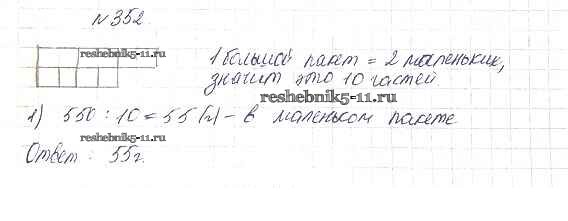 №352.
reshebnik5-11.ru
1 большой пакет = 2 маленьких,
значит это 10 частей.
reshebnik5-11.ru
1) 550 : 10 = 55 (г) - в маленьком пакете
Ответ: 55г.
reshebnik5-11.ru